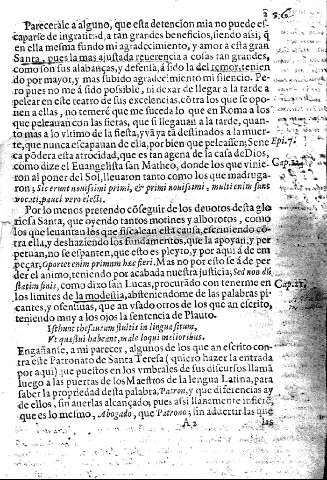 Parecerale à alguno, que esta detencion mia no puede es-
caparse de ingratitud, a tan grandes beneficios, siendo assi, q̃
en ella mesma fundo mi agradecimiento, y amor a esta gran
Santa, pues la mas ajustada reuerencia a cosas tan grandes,
como son sus alabanças, y defensa, à sido la del temor, tenien-
do por mayor, y mas subido agradecimiento mi silencio. Pe-
ro pues no me à sido possible, ni dexar de llegar a la tarde a
pelear en este teatro de sus excelencias, cõtra los que se opo-
nen a ellas, no temerè que me suceda lo que en Roma a los
que peleauan con las fieras, que si llegauan a la tarde, quan-
to mas a lo vltimo de la fiesta, yvã ya tã destinados a la muer-
te, que nunca escapauan de ella, por bien que peleassen; Sene
ca põdera esta atrocidad, que es tan agena de la casa de Dios,
como dize el Euangelista san Matheo, donde los que vinie-
ron al poner del Sol, lleuaron tanto como los que madruga-
ron; Sic erunt nouissimi primi, & primi nouissimi, multi enim sunt
vocati, pauci vero electi.
Epi. 7.
Por lo menos pretendo cõseguir de los deuotos desta glo
riosa Santa, que oyendo tantos motines y alborotos, como
los que leuantan los que fiscalean esta causa, escriuiendo cõ-
tra ella, y deshaziendo los fundamentos, que la apoyan, y per
petuan, no se espanten, que esto es pleyto, y por aqui à de em
peçar, Oportet enim primum hæc fieri. Mas no por esto se à de per
der el animo, teniendo por acabada nuestra justicia, Sed non di
statim finis, como dixo san Lucas, procurado con tenerme en
los limites de la modestia, absteniendome de las palabras pi-
cantes, y ofensiuas, que an vsado otros de los que an escrito,
teniendo muy a los ojos la sentencia de Plauto.
Isthunc thesaurum stultis in lingua situm,
Vt quæstui habeant, male loqui melioribus.
Engañanse, a mi parecer, algunos de los que an escrito con-
tra este Patronato de Santa Teresa (quiero hazer la entrada
por aqui) que puestos en los vmbrales de sus discursos llamã
luego a las puertas de los Maestros de la lengua Latina, para
saber la propriedad desta palabra, Patron, y que diferencias ay
de ellos, sin auerlas alcançado; pues assi llanamente infiere,
que es lo mesmo, Abogado, que Patrono; sin aduertir las que
A 2
las